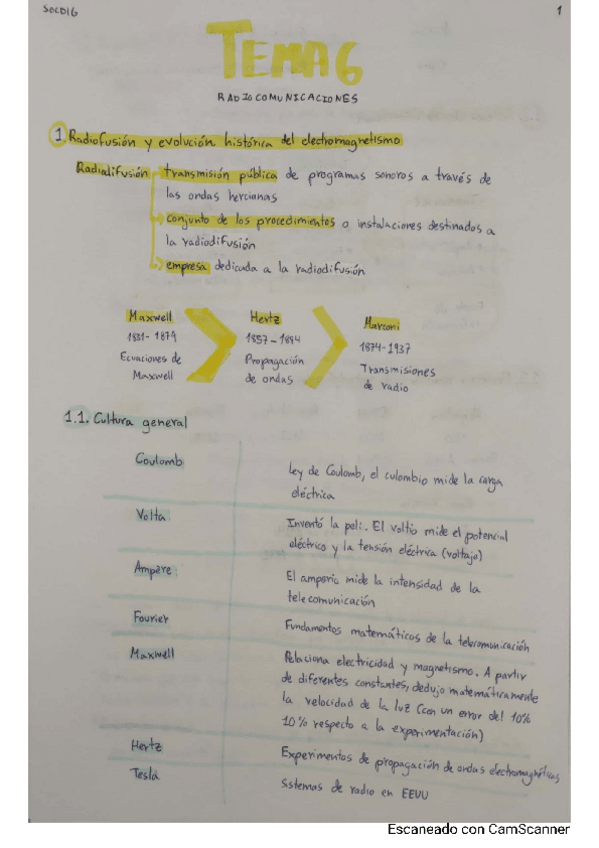 SOCDIG
1
TEMA 6
RADIOCOMUNICACIONES
1. Radiofusión y evolución histórica del electromagnetismo
Radiadifusión transmisión pública de programas sonoros a través de
las ondas hercianas
conjunto de los procedimientos o instalaciones destinados a
la radiodifusión
empresa dedicada a la radiodifusión
Maxwell
1831-1879
Ecuaciones de
Maxwell
Hertz
1857-1894
Propagación
de ondas
Marconi
1874-1937
Transmisiones
de radio
1.1. Cultura general
Coulomb
Ley de Coulomb, el culombio mide la carga
eléctrica
Volta
Inventó la peli. El voltio mide el potencial
eléctrico y la tensión eléctrica (voltaje)
Ampère
El amperio mide la intensidad de la
telecomunicación
Fourier
Fundamentos matemáticos de la telecomunicación
Maxwell
Relaciona electricidad y magnetismo. A partir
de diferentes constantes, dedujo matemáticamente
la velocidad de la luz (con un error del 10%
10% respecto a la experimentación)
Hertz
Experimentos de propagación de ondas electromagnéticas
Tesla
Sistemas de radio en EEUU
Escaneado con CamScanner